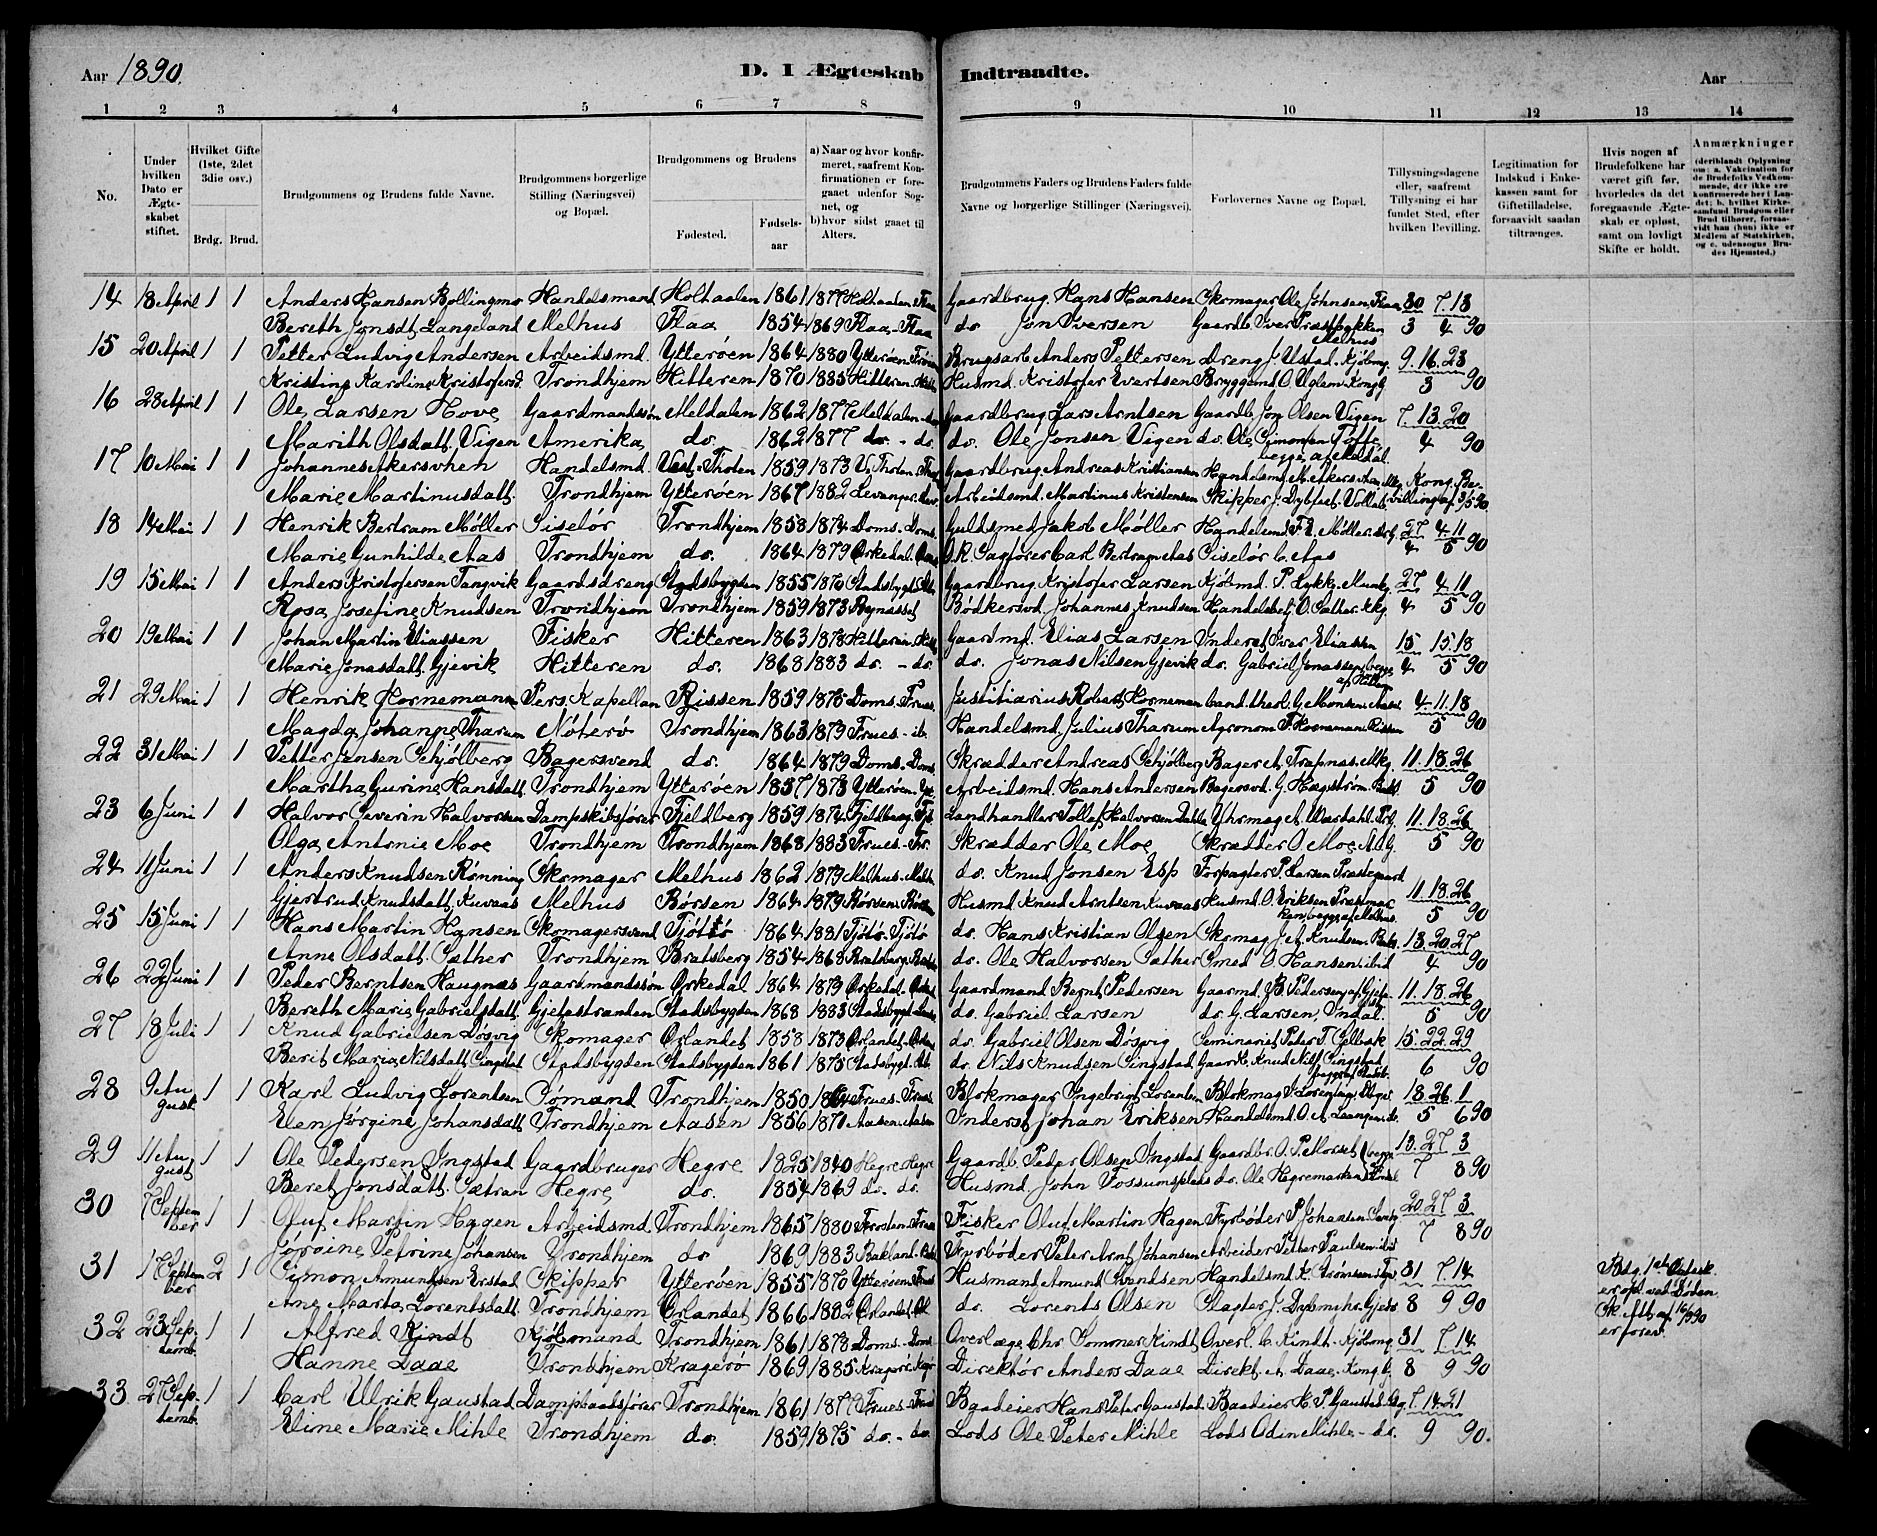 Aar 1890. D. I Ægteskab Indtraadte. Aar
1 2 3 4 5 6 7 8 9 10 11 12 13 14
No.
Under hvilken Dato er Ægteskabet stiftet.
Hvilket Gifte (1ste, 2det 3die osv.)
Brdg. Brud.
Brudgommens og Brudens fulde Navne.
Brudgommens borgerlige Stilling (Næringsvei) og Bopæl.
Brudgommens og Brudens
Fødested. Fødselsaar
a) Naar og hvor konfirmeret, saafremt Konfirmationen er foregaaet udenfor Sognet, og b) hvor sidst gaaet til Alters.
Brudgommens Faders og Brudens Faders fulde Navne og borgerlige Stillinger (Næringsvei).
Forlovernes Navne og Bopæl.
Tillysningsdagene eller, saafremt Tillysning ei har fundet Sted, efter hvilken Bevilling.
Legitimation for Indskud i Enkekassen samt for Giftetilladelse, forsaavidt saadan tiltrænges.
Hvis nogen af Brudefolkene har været gift før, hvorledes da det foregaaende Ægteskab er opløst, samt om lovligt Skifte er holdt.
Anmærkninger (deriblandt Oplysning om: a. Vakcination for de Brudefolks Vedkommende, der ikke ere konfirmerede her i Landet; b. hvilket Kirkesamfund Brudgom eller Brud tilhører, forsaavidt han (hun) ikke er Medlem af Statskirken, og c. udensogns Brudes Hjemsted.)
14 18 April 1 1 Anders Hansen Bollingmo Handelsmand Holtaalen 1861 1877 Holtaalen Flaa Gaardbrug. Hans Hansen Skomager Ole Johnsen, Flaa 30 7 13
Bereth Jonsdt. Langeland Melhus Flaa 1854 1869 Flaa - Flaa do Jon Iversen Gaardb. Iver Præstbykken Melhus 3 4 90
15 20 April 1 1 Petter Ludvig Andersen Arbeidsmd. Ytterøen 1864 1880 Ytterøen Brugsarb. Anders Pettersen Dreng J. Ustad. Kjøbmg. 9. 16. 23
Kristine Karoline Kristofersd. Trondhjem Hitteren 1870 1885 Hitteren Husmd. Kristofer Evertsen Bryggemd. O. Uglem. Kongsg 3 90
16 28 April 1 1 Ole Larsen Hove Gaardmandssøn Meldalen 1862 1877 Meldalen - do Gaardbrug. Lars Arntsen Gaardb. Jon Olsen Vigen 7. 13. 20
Marith Olsdatt. Vigen Amerika do. 1862 1877 do. - do. do. Ole Jonsen Vigen do. Ole Simonsen Tofte begge af Meldal. 4 90
17 10 Mai 1 1 Johannes Akersvhen Handelsmd. Vest-Thoten 1859 1873 V. Thoten Gaardbrug Andreas Kristiansen Handelsmd. M. Akers Kong. Be-
Marie Martinusdatt. Trondhjem Ytterøen 1867 1882 Levanger Arbeidsmd. Martinus Kristensen Skipper J. Dybfest. villing af 3/5 90
18 14 Mai 1 1 Henrik Bertram Møller Siselør Trondhjem 1858 1874 Doms.-Doms. Guldsmed Jakob Møller Handelsmd. F. E. Møller 27 4. 11
Marie Gunhilde Aas Trondhjem do. 1864 1879 Orkedal. O.R. Sagfører Carl Bertram Aas Siselør C. Aas 4 5 90
19 15 Mai 1 1 Anders Kristofersen Tangvik Gaardsdreng Stadsbygden 1855 1870 Stadsbygd. Gaardbrug Kristofer Larsen Kjøbmd. P. Lykke, Munkg. 27 4. 11
Rosa Josefine Knudsen Trondhjem Trondhjem 1859 1873 Bynæsset Bødkersvd. Johannes Knudsen Handelsbet. O. Sæther. Kkg. 4 5 90
20 19 Mai 1 1 Johan Martin Eliassen Fisker Hitteren 1863 1878 Hitteren Gaardmd. Elias Larsen Inderst Iver Eliassen 15 15. 18
Marie Jonasdatt. Gjevik Hitteren do. 1868 1883 do. - do. do. Jonas Nilsen Gjevik do. Gabriel Jonassen, begge af Hitteren 4 5 90
21 29 Mai 1 1 Henrik Hornemann Pers. Kapellan Rissen 1859 1875 Doms. Frues. Justitiarius Robert Horneman Cand. theol. G. Monsen 4. 11. 18
Magda Johanne Tharum Nøterø Trondhjem 1863 1879 Frues - ib. Handelsmd. Julius Tharum Agronom F. Hornemann Rissen 5 90
22 31 Mai 1 1 Petter Jensen Schjølberg Bagersvend do. 1864 1879 Doms.-Doms. Skrædder Andreas Schjølberg Bager A. Trapnæs. Mkg. 11. 18. 26
Martha Gurine Hansdatt. Trondhjem Ytterøen 1857 1873 Ytterøen. Arbeidsmd. Hans Andersen Bagersvd. G. Hægstrøm. Bakl. 5 90
23 6 Juni 1 1 Halvor Severin Halvorsen Dampskibsfører Fjeldberg 1859 1874 Fjeldberg. Landhandler Tollef Halvorsen Uhrmag. A. Værdahl. 11. 18. 26
Olga Antonie Moe Trondhjem Trondhjem 1868 1883 Frues - Fr. Skrædder Ole Moe Skrædder O. Moe, 5 90
24 11 Juni 1 1 Anders Knudsen Rønning Skomager Melhus 1862 1879 Melhus. do. Knud Jonsen Esp Forpagter P. Larsen Præstegaard 11. 18. 26
Gjertrud Knudsdatt. Kuvaas Melhus Børsen 1864 1879 Børsen. Husmd. Knud Arntsen Kuvaas Husmd. O. Eriksen Præstmarken, begge af Melhus. 5 90
25 15 Juni 1 1 Hans Martin Hansen Skomagersvend Tjøtø 1864 1881 Tjøtø Tjøtø do. Hans Kristian Olsen Skomag. J. A. Knudsen. Bakl. 13. 20. 27
Anne Olsdatt. Sæther Trondhjem Bratsberg 1854 1868 Bratsberg. do. Ole Halvorsen Sæther Smed O. Hansen. ibid 4 90
26 22 Juni 1 1 Peder Berntsen Haugnæs Gaardmandssøn Orkedal 1864 1879 Orkedal. Gaardmand Bernt Pedersen Gaarmd. B. Pedersen af Gjete- 11. 18. 26
Bereth Marie Gabrielsdatt. Gjetestranden Stadsbygden 1868 1883 Stadsbygd. do. Gabriel Larsen do. G. Larsen, 5 90
27 18 Juli 1 1 Knud Gabrielsen Døsvig Skomager Ørlandet 1858 1873 Ørlandet. do. Gabriel Olsen Døsvig Seminarist Peter T. Selbæk 15. 22. 29
Berit Maria Nilsdatt. Singstad Stadsbygden Stadsbygden 1861 1875 Stadsbygd. do. Nils Knudsen Singstad Gaardb. Knud Nils. Singstad 6 90
28 9 August 1 1 Karl Ludvig Lorentsen Sømand Trondhjem 1850 Frues - Frues Blokmager Ingebrigt Lorentsen Blokmag. I. Lorentsen, 18. 26. 1
Elen Jørgine Johansdatt. Trondhjem Aasen 1856 1870 Aasen - Aasen Inderst Johan Eriksen Handelsmd. O. A. Leangen. do. 5 6 90
29 11 August 1 1 Ole Pedersen Ingstad Gaardbruger Hegre 1825 1840 Hegre Hegre Gaardb. Peder Olsen Ingstad Gaardbr. O. P. 13. 27 3
Beret Jonsdatt. Sætran Hegre do. 1854 1869 do. do. Husmd. John Fossumsplads do. Ole Hegremarken 7 8 90
30 7 September 1 1 Oluf Martin Hagen Arbeidsmd. Trondhjem 1865 1880 Frosten Fisker Oluf Martin Hagen Fyrbøder P. Johansen 20 27 3
Jørgine Petrine Johansen Trondhjem do 1869 1883 Bakland. Fyrbøder Peter Arnt Johansen Arbeider Petter Paulsen ibid 7 8 90
31 17 September 2 1 Simon Amundsen Erstad Skipper Ytterøen 1855 1870 Ytterøen Husmand Amund Svendsen Handelsmd. K. Strømsem 31 7. 14 Bdg. 1ste Ægtesk. er opl. ved Døden. Sk. Att. af 16/9 90 er forev.
Ane Marta Lorentsdatt. Trondhjem Ørlandet 1866 1882 Ørlandet. do. Lorents Olsen Slagter J. Dybmyhr. 8 9 90
32 23 Septemb. 1 1 Alfred Kindt Kjøbmand Trondhjem 1861 1878 Doms - Doms. Overlæge Chr. Sommer Kindt Overl. C. Kindt. Kjøbmg. 31 7. 14
Hanne Daae Trondhjem Kragerø 1869 1885 Kragerø Direktør Anders Daae Direkt. A. Daae. Kong. G. 8 9 90
33 27 Septemb. 1 1 Carl Ulrik Gaustad Dampbaadsfører Trondhjem 1861 1877 Frues - Baadeier Hans Peter Gaustad Baadeier H. P. Gaustad 7. 14. 21
Eline Marie Mihle Trondhjem do. 1859 1875 do. - do. Lods Ole Peter Mihle Lods Odin Mihle - do. 9 90.